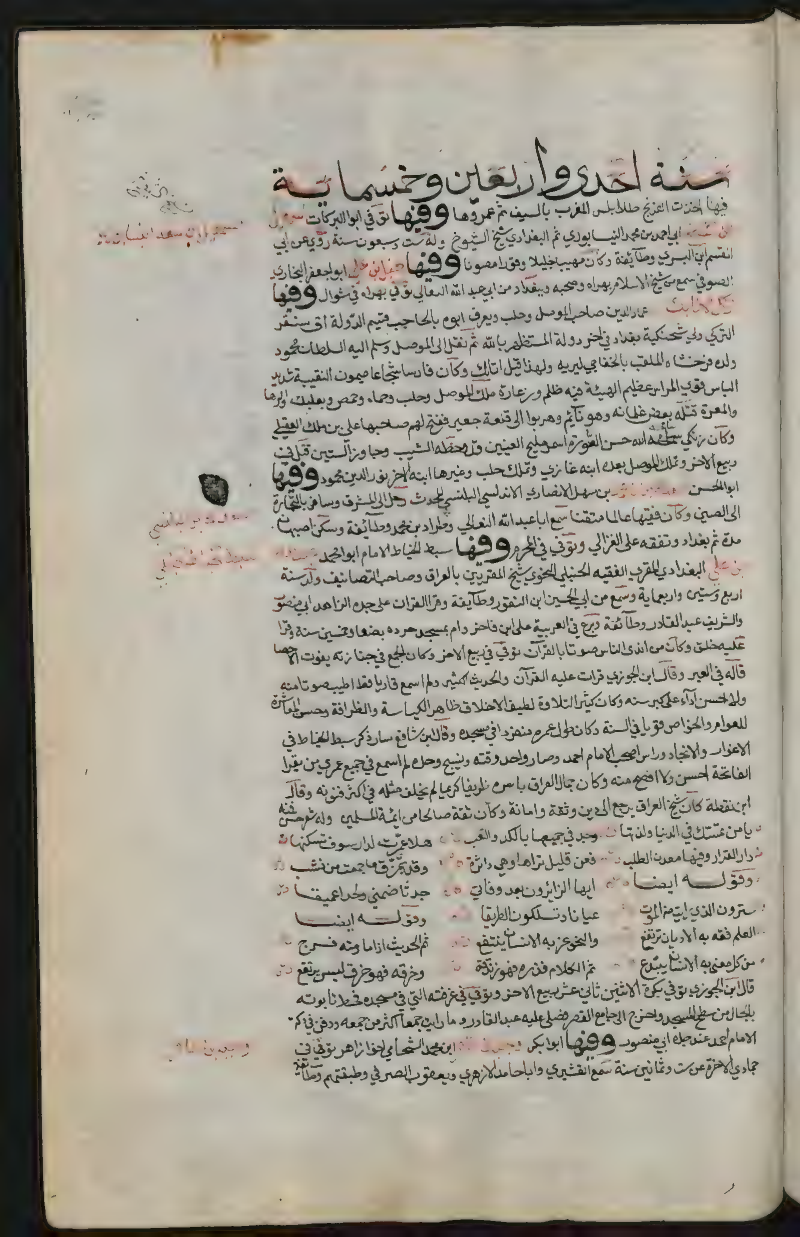 سنة احدى واربعين وخمسماية
فيها اخذت الفرنج طرابلس المغرب بالسيف ثم عمروها وفيها توفي ابو البركات اسمعيل
ابي احمد بن محمد النيسابوري ثم البغدادي شيخ الشيوخ وله ست وسبعون سنة روى عن ابي
القسم ابن البسري وطايفة وكان مهيبا جليلا وقورا مصونا وفيها حنبل بن علي ابو جعفر البخاري
الصوفي سمع من شيخ الاسلام بهراه وصحبه وببغداد من ابي عبد الله النعالي توفي بهراه في شوال وفيها
زنكي الاتابك عماد الدين صاحب الموصل وحلب ويعرف ابوه بالحاجب قسيم الدولة اق سنقر
التركي ولي شحنكية بغداد في اخر دولة المستظهر بالله ثم نقل الى الموصل وسلم اليه السلطان محمود
ولده فرخشاه الملقب بالخفاجي ليربيه ولهذا قيل اتابك وكان فارسا شجاعا ميمون النقيبة شديد
الباس قوي المراس عظيم الهيبة فيه ظلم وزعارة ملك الموصل وحلب وحماه وحمص وبعلبك والرها
والمعرة قتله بعض غلمانه وهو نايم وهربوا الى قلعة جعبر ففتح لهم صاحبها علي بن ملك العقيلي
وكان زنكي سامحه الله حسن الصورة اسمر مليح العينين قد وخطه الشيب وجاوز الستين قتل في
ربيع الاخر وتملك الموصل بعده ابنه غازي وتملك حلب وغيرها ابنه الاخر نور الدين محمود وفيها
ابو الحسن بن سهل الانصاري الاندلسي البلنسي المحدث رحل الى المشرق وسافر بالتجارة
الى الصين وكان فقيها عالما متقنا سمع ابا عبد الله النعالي وطراد بن محمد وطائفة وسكن اصبهان
مدة ثم بغداد وتفقه على الغزالي وتوفي في المحرم وفيها سبط الخياط الامام ابو محمد
بن علي البغدادي المقري الفقيه الحنبلي النحوي شيخ المقريين بالعراق وصاحب التصانيف ولد سنة
اربع وستين واربعماية وسمع من ابي الحسين ابن النقور وطايفة وقرا القران على جده الزاهد ابي منصور
والشريف عبد القادر وطائفة وبرع في العربية على ابن فاخر وام بمسجد جرده بضعا وخمسين سنة وقرا
عليه خلق وكان من اندى الناس صوتا بالقرآن توفي في ربيع الاخر وكان الجمع في جنازته يفوت الاحصا
قاله في العبر وقال ابن الجوزي قرات عليه القرآن والحديث الكثير ولم اسمع قاريا قط اطيب صوتا منه
ولا احسن آداء على كبر سنه وكان كثير التلاوة لطيف الاخلاق ظاهر الكياسة والظرافة وحسن المعاشرة
للعوام والخواص قويا في السنة وكان طول عمره منفردا في مسجده وقال ابن شافع سار ذكر سبط الخياط في
الاغوار والانجاد وراس اصحاب الامام احمد وصار واحد وقته ونسيج وحده لم اسمع في جميع عمري من يقرا
الفاتحة احسن ولا افصح منه وكان جمال العراق باسره ظريفا كريما لم يخلف مثله في اكثر فنونه وقال
ابن نقطة كان شيخ العراق يرجع الى دين وثقة وامانة وكان ثقة صالحا من ايمة المسلمين وله شعر حسن منه
يا من تمسك في الدنيا ولذتها وجد في جمعها بالكد والتعب هلا عمرت لدار سوف تسكنها
دار القرار وفيها معدن الطلب فعن قليل تراها وهي داثرة وقد تمزق ما جمعت من نشب
وقوله ايضا ايها الزايرون بعد وفاتي جدثا ضمني ولحدا عميقا
سترون الذي رايت من الموت عيانا وتسلكون الطريقا وقوله ايضا
العلم فقه به الاديان ترتفع والنحو عز به الانسان ينتفع ثم الحديث اذا ما رمته فرج
من كل معنى به الانسان يبتدع ثم الكلام فذره فهو زندقة وخرقه فهو خرق ليس يرتفع
قال ابن الجوزي توفي بكرة الاثنين ثاني عشر ربيع الاخر وتوفي في غرفته التي في مسجده فحط تابوته
بالحبال من سطح المسجد واخرج الى جامع القصر فصلى عليه عبد القادر وما رايت جمعا اكثر من جمعه ودفن في دكة
الامام احمد عند جده ابي منصور وفيها ابو بكر وجيه ابن محمد الشحامي اخو زاهر توفي في
جمادى الاخرة عن ست وثمانين سنة سمع القشيري وابا حامد الازهري ويعقوب الصيرفي وطبقتهم وطائفة